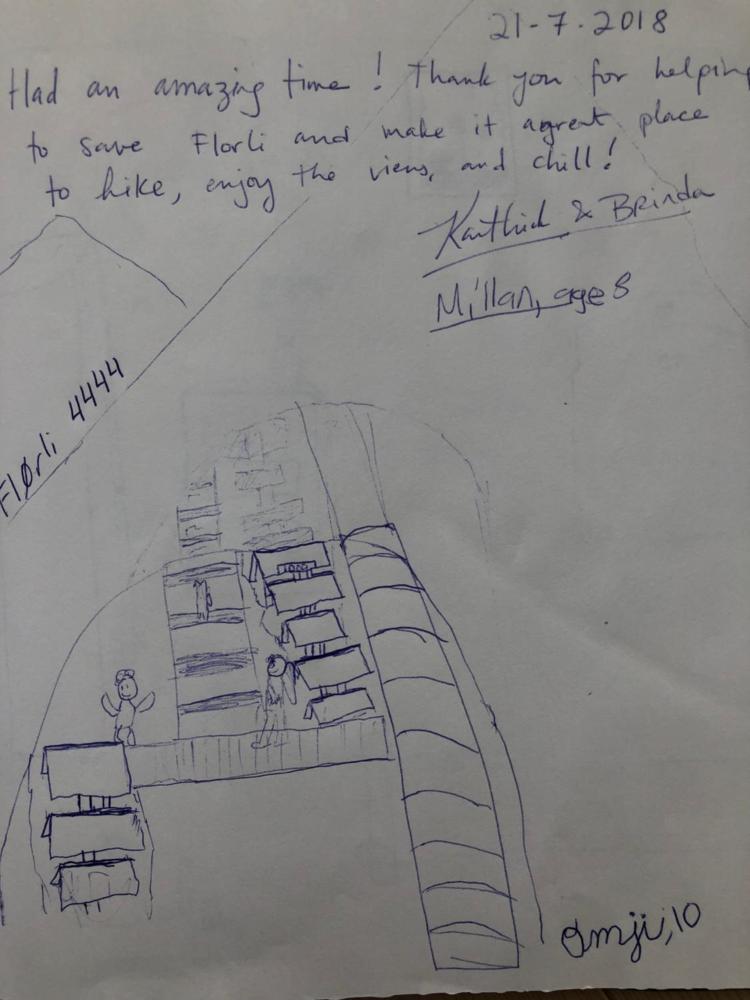 21-7.2018
Had an amazing time! Thank you for helping
to save Florli and make it a great place
to hike, enjoy the views, and chill!
Karthick & Brinda
Millan, age 8
Flørli 4444
1000
Omji, 10